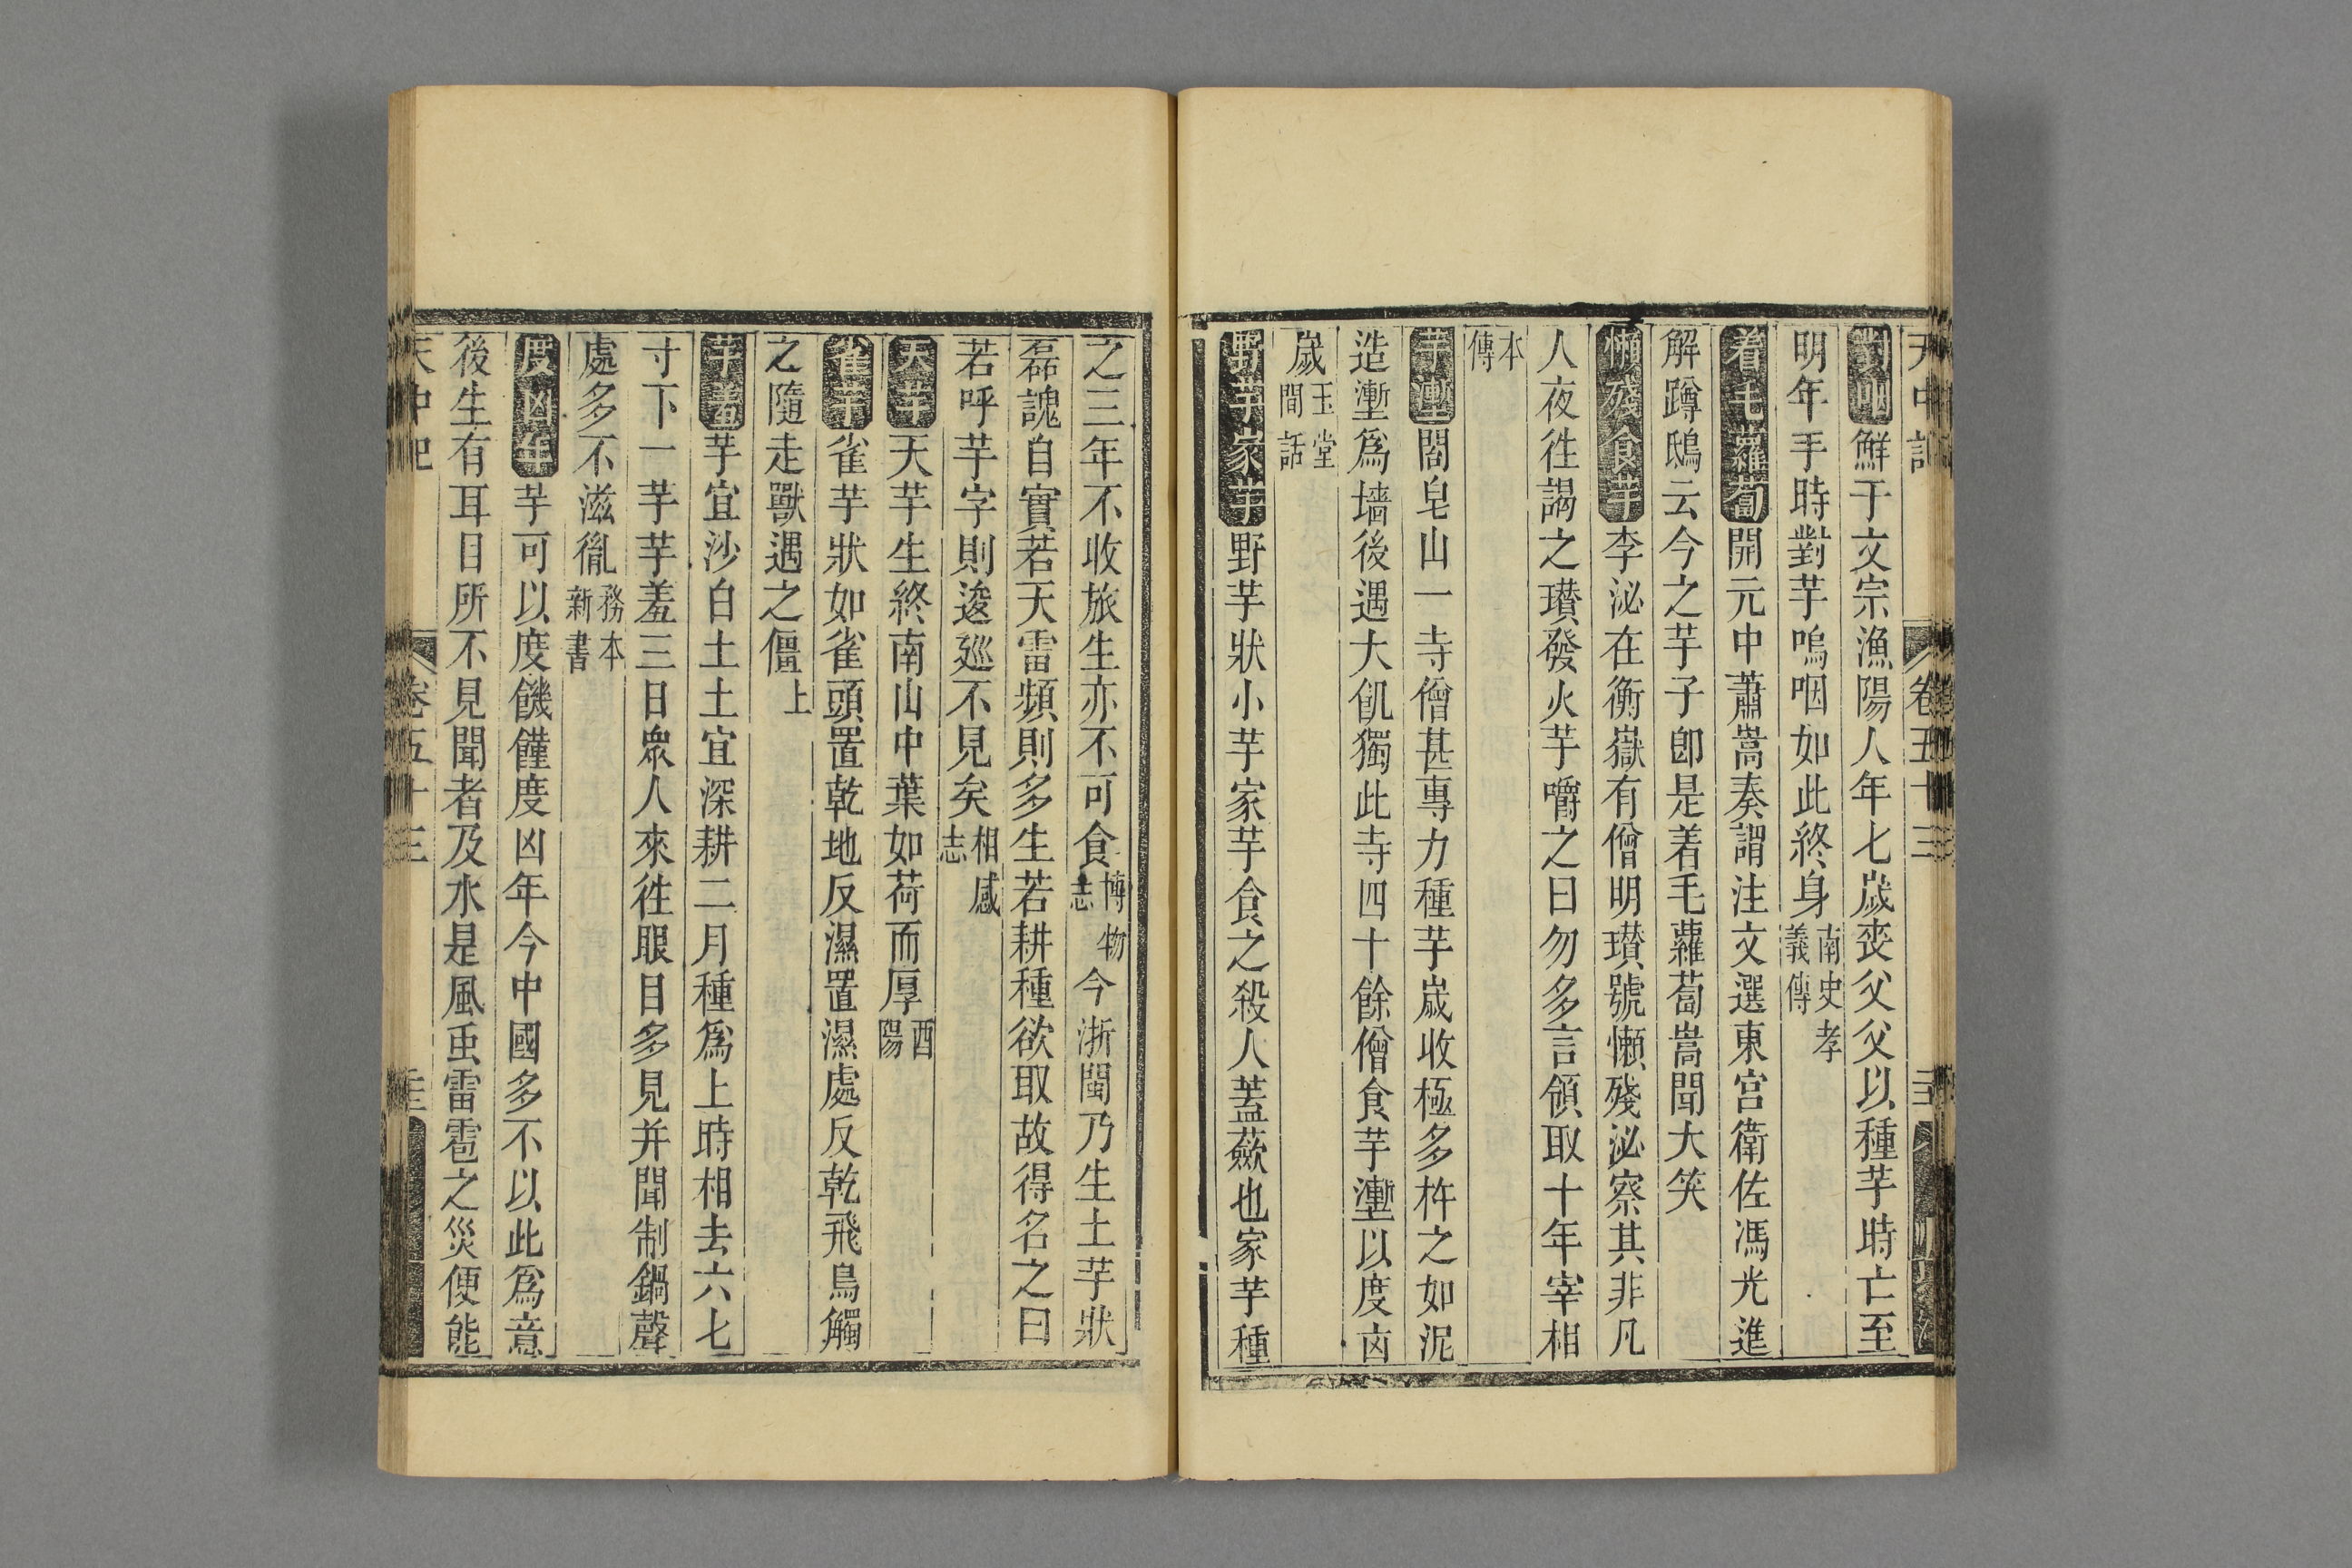 天中記 卷五十三
對咽鮮于文宗漁陽人年七歲丧父父以種芋時亡至
明年芋時對芋嗚咽如此終身南史孝義傳
着毛蘿蔔開元中蕭嵩奏謂注文選東宫衛佐馮光進
解蹲鴟云今之芋子卽是着毛蘿蔔嵩聞大笑
懶殘食芋李泌在衡嶽有僧明瓚號懶殘泌察其非凡
人夜往謁之瓚發火芋㗖之曰勿多言領取十年宰相
本傳
芋壍閣皂山一寺僧甚專力種芋嵗收極多杵之如泥
造壍為墻後遇大飢獨此寺四十餘僧食芋壍以度凶
嵗玉堂閒話
野芋家芋野芋狀小芋家芋食之殺人蓋蘝也家芋種
之三年不收旅生亦不可食博物志今浙閩乃生土芋狀
磊磈自實若天雷頻則多生若耕種欲取故得名之曰
若呼芋字則逡廵不見矣相感志
天芋天芋生終南山中葉如荷而厚酉陽
雀芋雀芋狀如雀頭置乾地反濕置濕處反乾飛鳥觸
之隨走獸遇之僵上
芋羞芋宜沙白土土宜深耕二月種為上時相去六七
寸下一芋芋羞三日衆人來往眼目多見并聞刷鍋聲
處多不滋㣧務本新書
度凶年芋可以度饑饉度凶年今中國多不以此為意
後生有耳目所不見聞者及水旱風虫雷雹之災便能
天中記 卷五十三